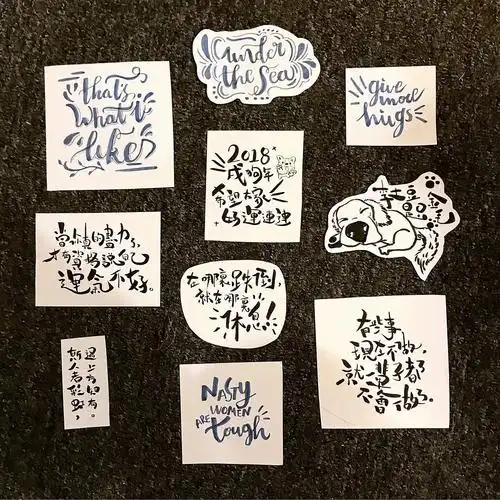 under
the Sea
that's
what i
like
give
more
hugs
2018
戌狗年
希望大家
好運連連
當你真的盡力了,
才有資格說自己
運氣不好。
在哪裏跌倒,
就在哪裏
休息!!
有些事
現在不做,
就一輩子都
不會做
斯人若彩虹,
遇上方知有。
NASTY
WOMEN
ARE
tough